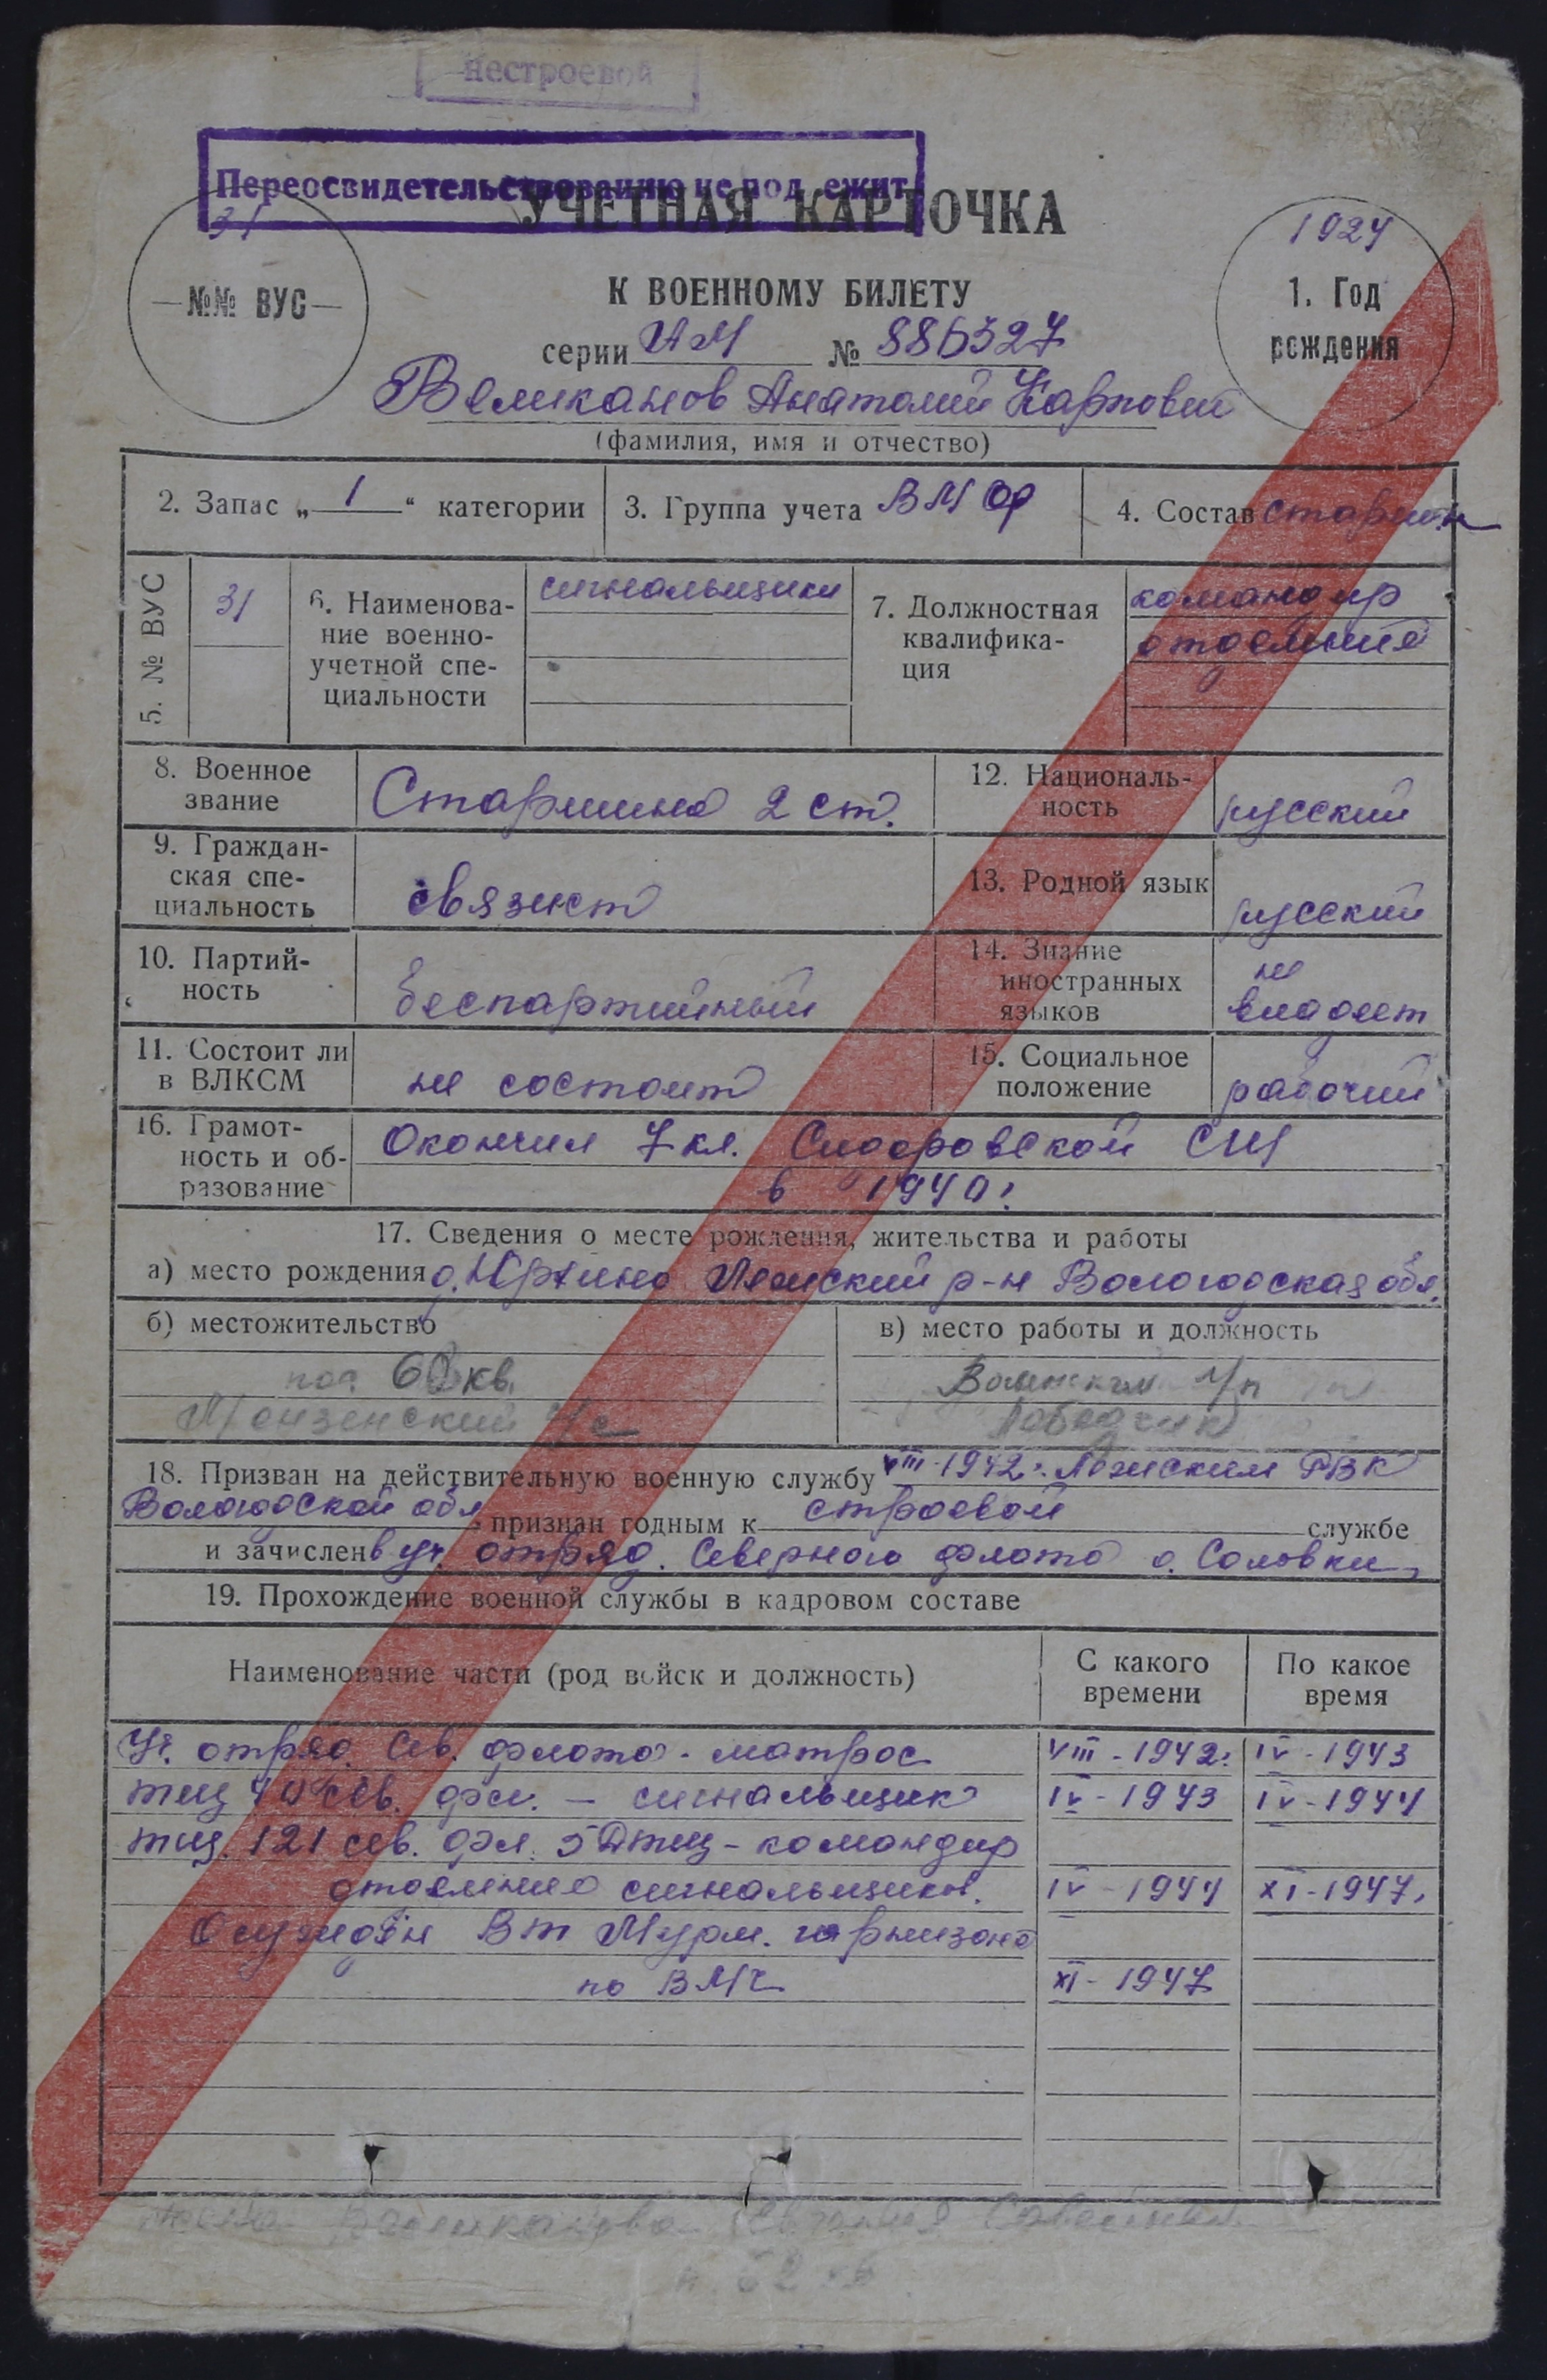 нестроевой
Переосвидетельствованию не под ежит
УЧЕТНАЯ КАРТОЧКА
31
—№№ ВУС—
1924
1. Год
рождения
К ВОЕННОМУ БИЛЕТУ
серии АМ № 886327
Великанов Анатолий Карпович
(фамилия, имя и отчество)
2. Запас „ 1 “ категории
3. Группа учета ВМФ
4. Состав старшин
5. № ВУС
31
6. Наименова-
ние военно-
учетной спе-
циальности
сигнальщики
7. Должностная
квалифика-
ция
командир
отделения
8. Военное
звание
Старшина 2 ст.
12. Националь-
ность
русский
9. Граждан-
ская спе-
циальность
связист
13. Родной язык
русский
10. Партий-
ность
беспартийный
14. Знание
иностранных
языков
не
владеет
11. Состоит ли
в ВЛКСМ
не состоит
15. Социальное
положение
рабочий
16. Грамот-
ность и об-
разование
Окончил 7 кл. Сидоровской СШ
в 1940г
17. Сведения о месте рождения, жительства и работы
а) место рождения д. Лежский р-н Вологодская обл.
б) местожительство
пос 62 кв.
Монзенский с/с
в) место работы и должность
л/п
18. Призван на действительную военную службу VIII-1942г. Лежским РВК
Вологодской обл признан годным к строевой службе
и зачислен в уч. отряд. Северного флота о. Соловки,
19. Прохождение военной службы в кадровом составе
Наименование части (род войск и должность)
С какого
времени
По какое
время
Уч. отряд Сев. флота - матрос VIII-1942г IV-1943
тщ 40 сев. фл. - сигнальщик IV-1943 IV-1944
тщ. 121 сев. фл. 5 Дтщ - командир
отделения сигнальщиков. IV-1944 XI-1947,
Осужден ВТ Мурм. гарнизона
по XI-1947
Жена Великанова
п. 62 кв